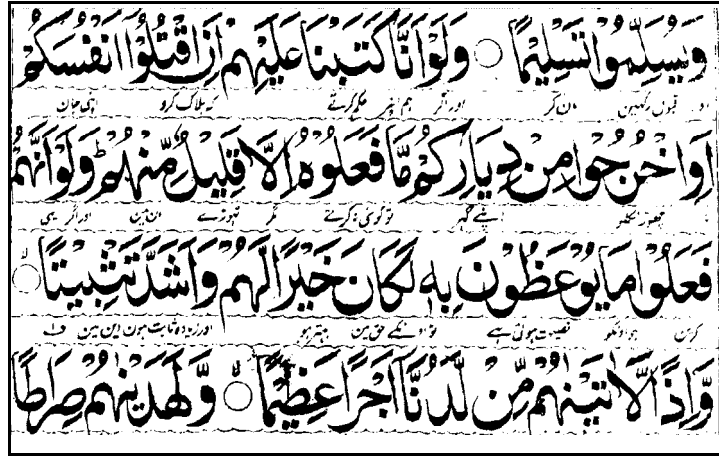 وَيُسَلِّمُوْا تَسْلِيْمًا ○ وَلَوْ اَنَّا كَتَبْنَا عَلَيْهِمْ اَنِ اقْتُلُوْٓا اَنْفُسَكُمْ
اور قبول رکھیں مان کر اور اگر ہم ان پر حکم کرتے کہ ہلاک کرو اپنی جان
اَوِ اخْرُجُوْا مِنْ دِيَارِكُمْ مَّا فَعَلُوْهُ اِلَّا قَلِيْلٌ مِّنْهُمْ ؕ وَلَوْ اَنَّهُمْ
چھوڑ نکلو اپنے گھر تو کوئی نہ کرتے مگر تھوڑے ان میں اور اگر یہی
فَعَلُوْا مَا يُوْعَظُوْنَ بِهٖ لَكَانَ خَيْرًا لَّهُمْ وَاَشَدَّ تَثْبِيْتًا ○
کریں جو انکو نصیحت ہوتی ہے تو انکے حق میں بہتر ہو اور زیادہ ثابت ہوں دین میں
وَّاِذًا لَّاٰتَيْنٰهُمْ مِّنْ لَّدُنَّآ اَجْرًا عَظِيْمًا ○ وَّلَهَدَيْنٰهُمْ صِرَاطًا